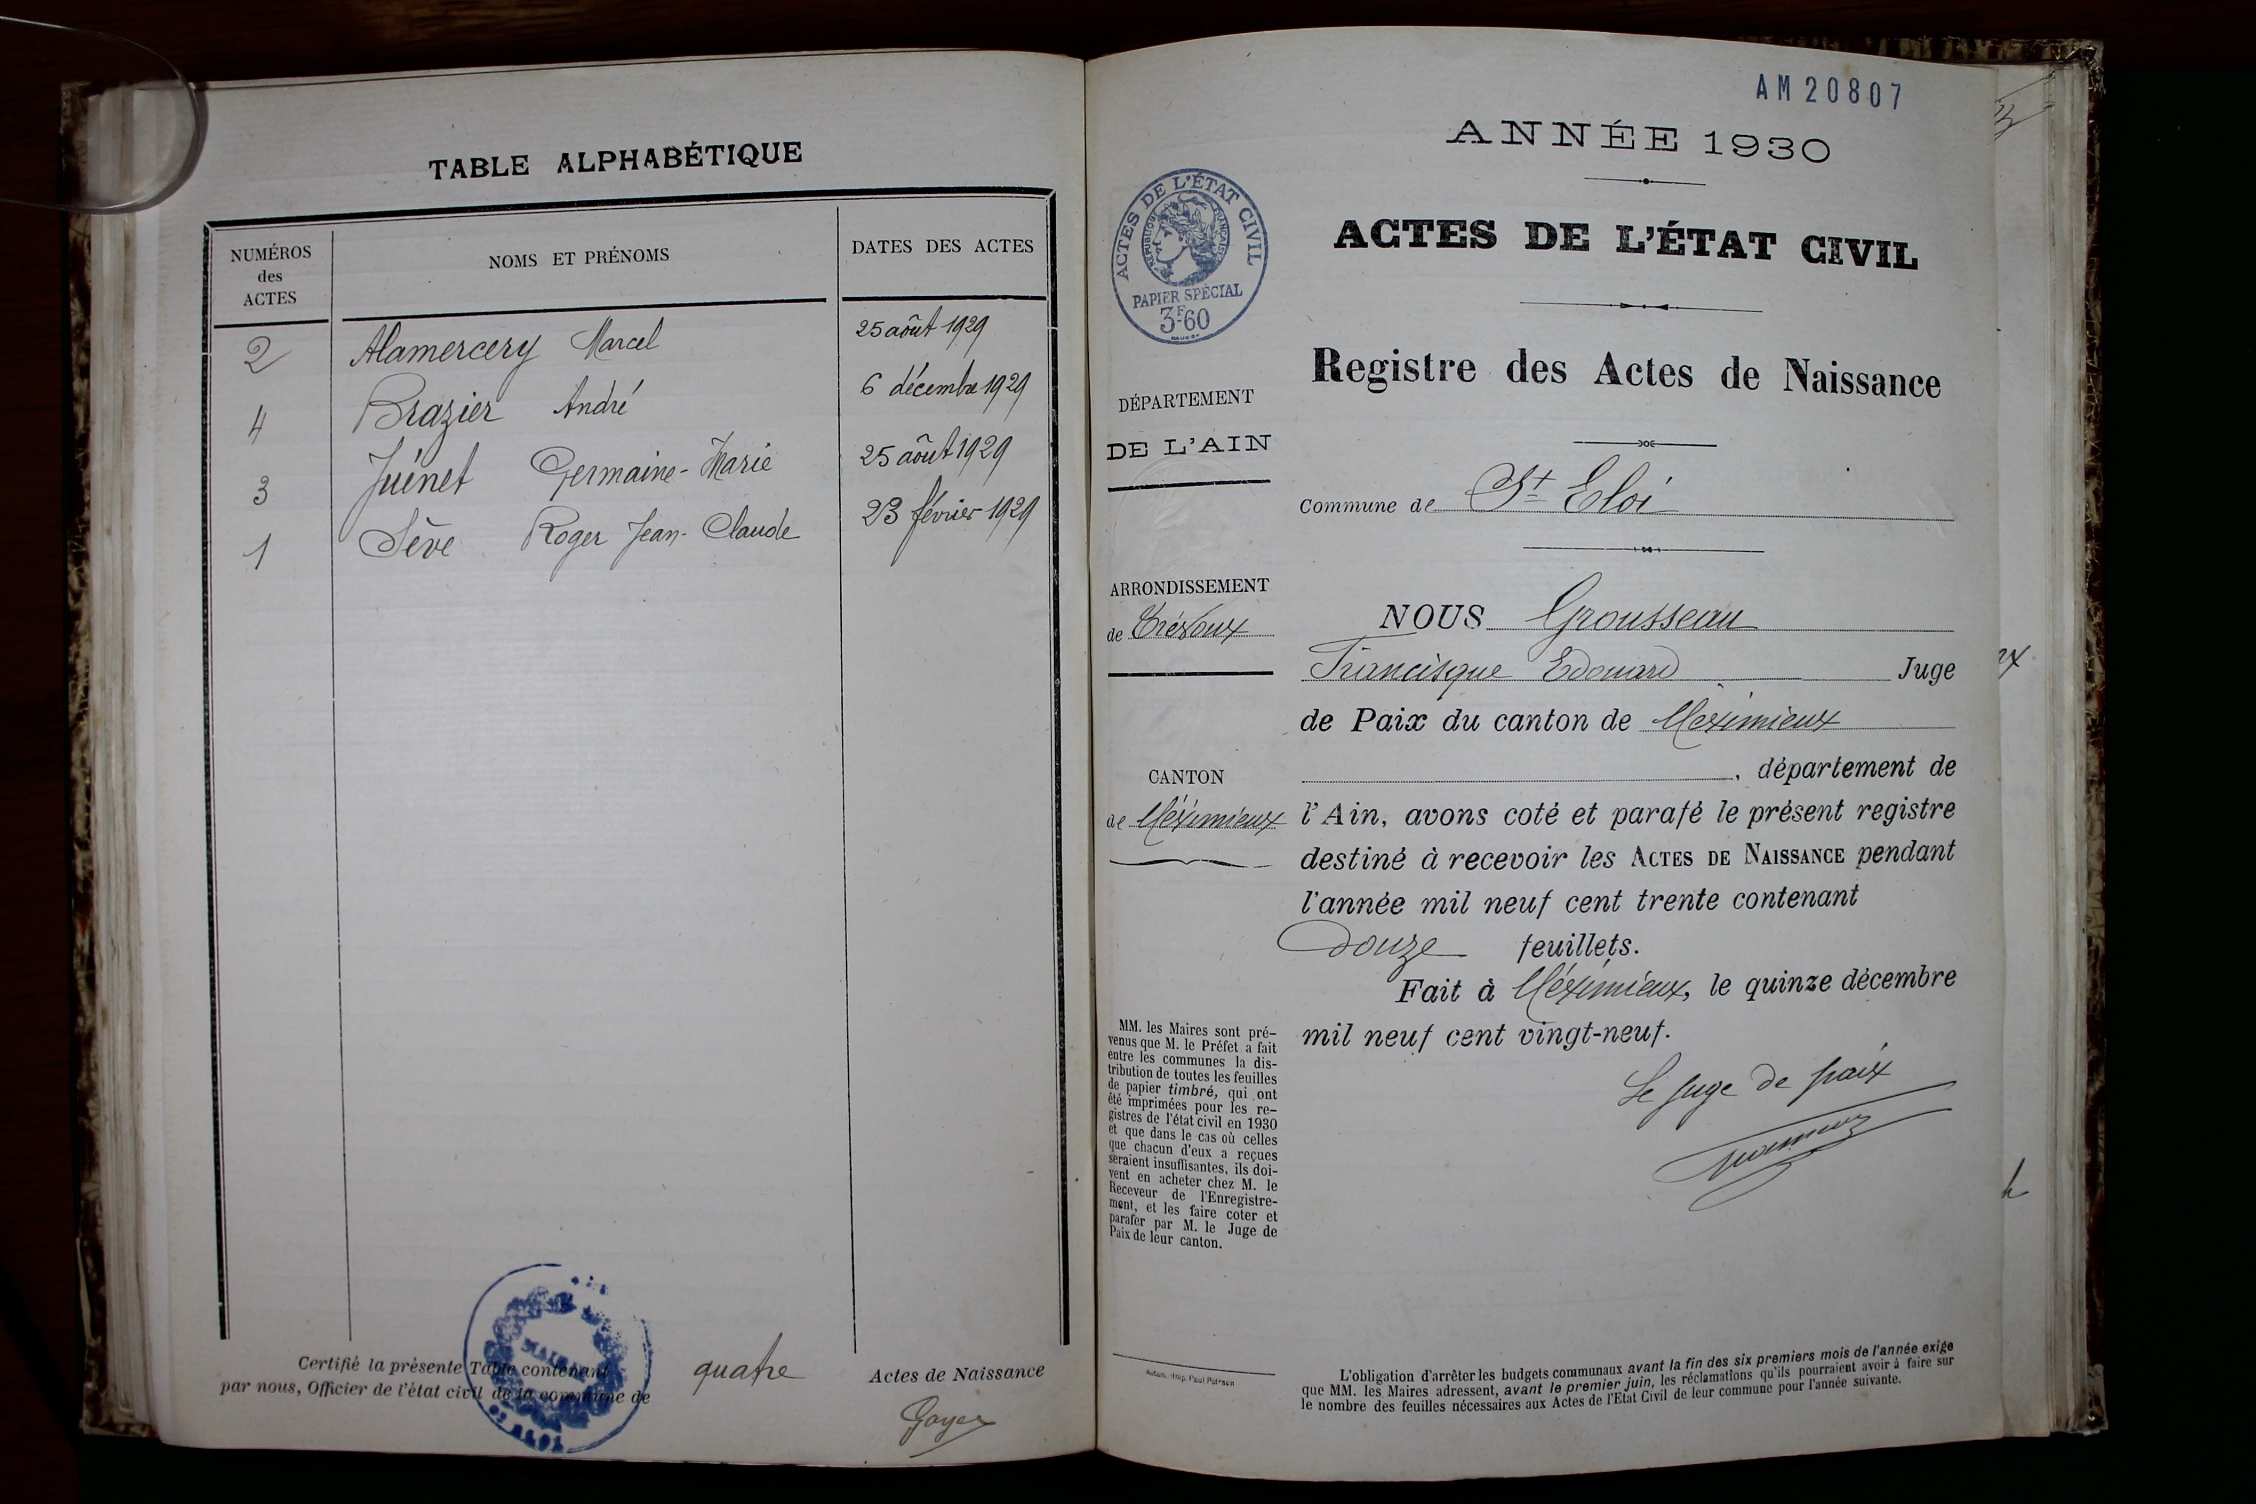 TABLE ALPHABÉTIQUE
NUMÉROS
des
ACTES
NOMS ET PRÉNOMS
DATES DES ACTES
2 Alamercery Marcel 25 août 1929
4 Brazier André 6 décembre 1929
3 Juénet Germaine-Marie 25 août 1929
1 Sève Roger Jean-Claude 23 février 1929
Certifié la présente Table contenant quatre Actes de Naissance
par nous, Officier de l'état civil de la commune de
AM 20807
ANNÉE 1930
ACTES DE L'ÉTAT CIVIL
RÉPUBLIQUE FRANÇAISE
PAPIER SPÉCIAL
3F60
ACTES DE L'ÉTAT CIVIL
Registre des Actes de Naissance
DÉPARTEMENT
DE L'AIN
Commune de St Eloi
ARRONDISSEMENT
de Trévoux
CANTON
de Méximieux
NOUS Grousseau
Francisque Edouard Juge
de Paix du canton de Méximieux
, département de
l'Ain, avons coté et parafé le présent registre
destiné à recevoir les ACTES DE NAISSANCE pendant
l'année mil neuf cent trente contenant
douze feuillets.
Fait à Méximieux, le quinze décembre
mil neuf cent vingt-neuf.
Le juge de paix
MM. les Maires sont pré-
venus que M. le Préfet a fait
entre les communes la dis-
tribution de toutes les feuilles
de papier timbré, qui ont
été imprimées pour les re-
gistres de l'état civil en 1930
et que dans le cas où celles
que chacun d'eux a reçues
seraient insuffisantes, ils doi-
vent en acheter chez M. le
Receveur de l'Enregistre-
ment, et les faire coter et
parafer par M. le Juge de
Paix de leur canton.
L'obligation d'arrêter les budgets communaux avant la fin des six premiers mois de l'année exige
que MM. les Maires adressent, avant le premier juin, les réclamations qu'ils pourraient avoir à faire sur
le nombre des feuilles nécessaires aux Actes de l'Etat Civil de leur commune pour l'année suivante.